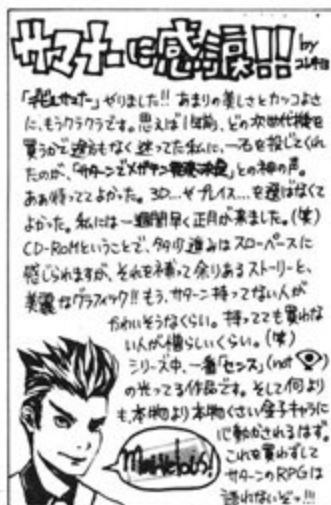 サマナーに感謝!! by
「デビルサマナー」やりました!! あまりの美しさとカッコよさ
に、もうクラクラです。思えば1年前、どの次世代機を
買うかで途方もなく迷ってた私に、一石を投じてくれ
たのが、「サターンでメガテン発売決定」との神の声。
ああ待っててよかった。3D…やプレイス…を選ばなくて
よかった。私には一週間早く正月が来ました。(笑)
CD-ROMということで、多少進みはスローペースに
感じられますが、それを補って余りあるストーリーと、
美麗なグラフィック!! もう、サターン持ってない人が
かわいそうなくらい。持ってても買わな
い人が憎らしいくらい。(笑)
シリーズ中、一番「センス」(not )
の光ってる作品です。そして何より
も、本物より本物くさい金子キャラに
心動かされるはず。
これを買わずして
サターンのRPGは
語れないぞッ!!!
Marvelous!